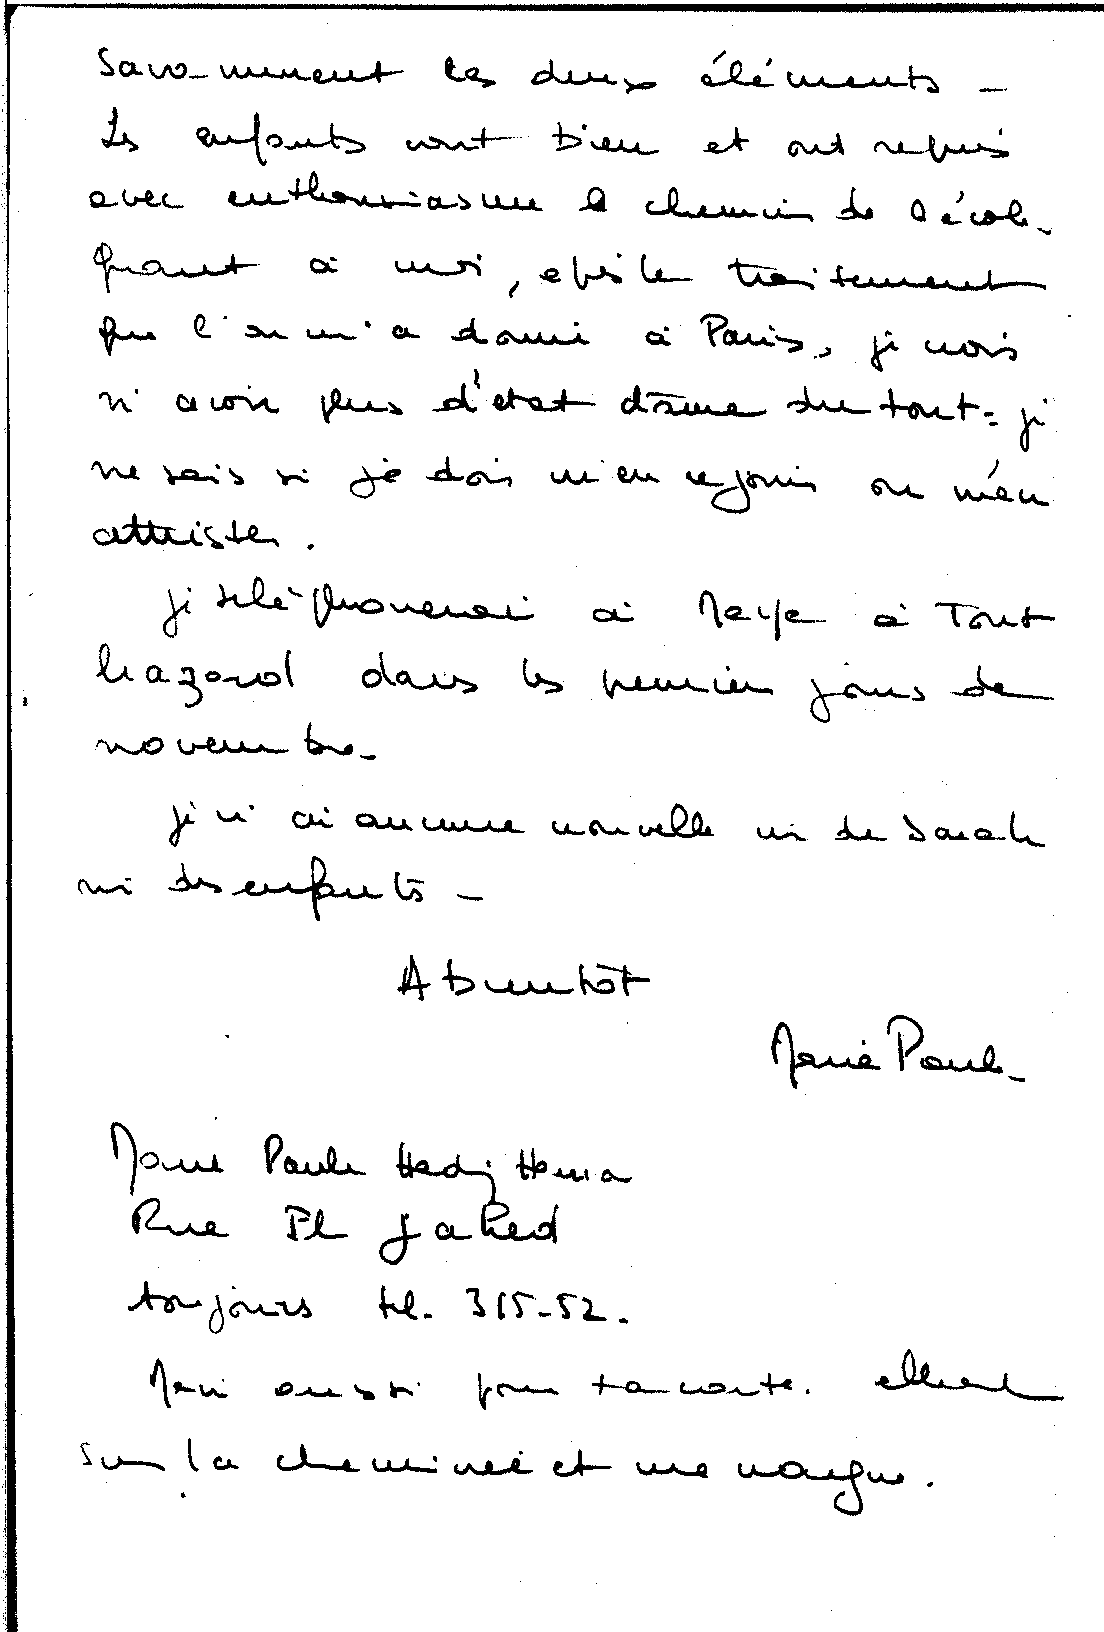 savamment les deux éléments -
Les enfants vont bien et ont repris
avec enthousiasme le chemin de l'école.
Quant à moi, après le traitement
que l'on m'a donné à Paris, je crois
n'avoir plus d'état d'âme du tout - je
ne sais si je dois m'en réjouir ou m'en
attrister.
Je téléphonerai à à Tout
hazard dans les premiers jours de
novembre -
Je n'ai aucune nouvelle ni de Sarah
ni des enfants -
A Bientôt
Marie Paule -
Marie Paule Hadj
Rue El
toujours tél. 315-52.
Merci aussi pour ta carte.
sur la cheminée et me nargue.